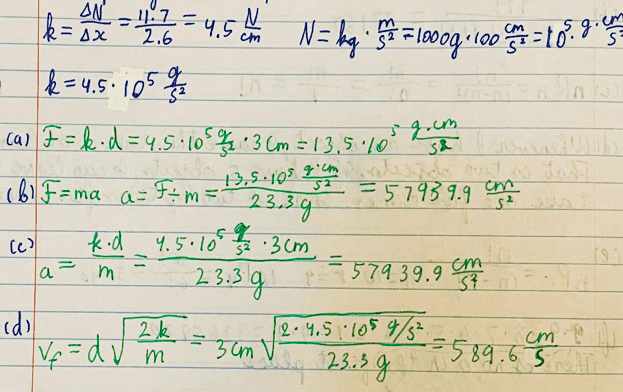 k = ΔN/Δx = 11.7/2.6 = 4.5 N/cm   N = kg · m/s² = 1000g · 100 cm/s² = 10⁵ · g · cm/s²
k = 4.5 · 10⁵ g/s²
(a) F = k · d = 4.5 · 10⁵ g/s² · 3cm = 13.5 · 10⁵ g·cm/s²
(b) F = ma   a = F ÷ m = (13.5 · 10⁵ g·cm/s²)/(23.3 g) = 57939.9 cm/s²
(c) a = k·d/m = (4.5 · 10⁵ g/s² · 3cm)/(23.3 g) = 57939.9 cm/s²
(d) v_f = d √(2k/m) = 3cm √((2 · 4.5 · 10⁵ g/s²)/(23.3 g)) = 589.6 cm/s